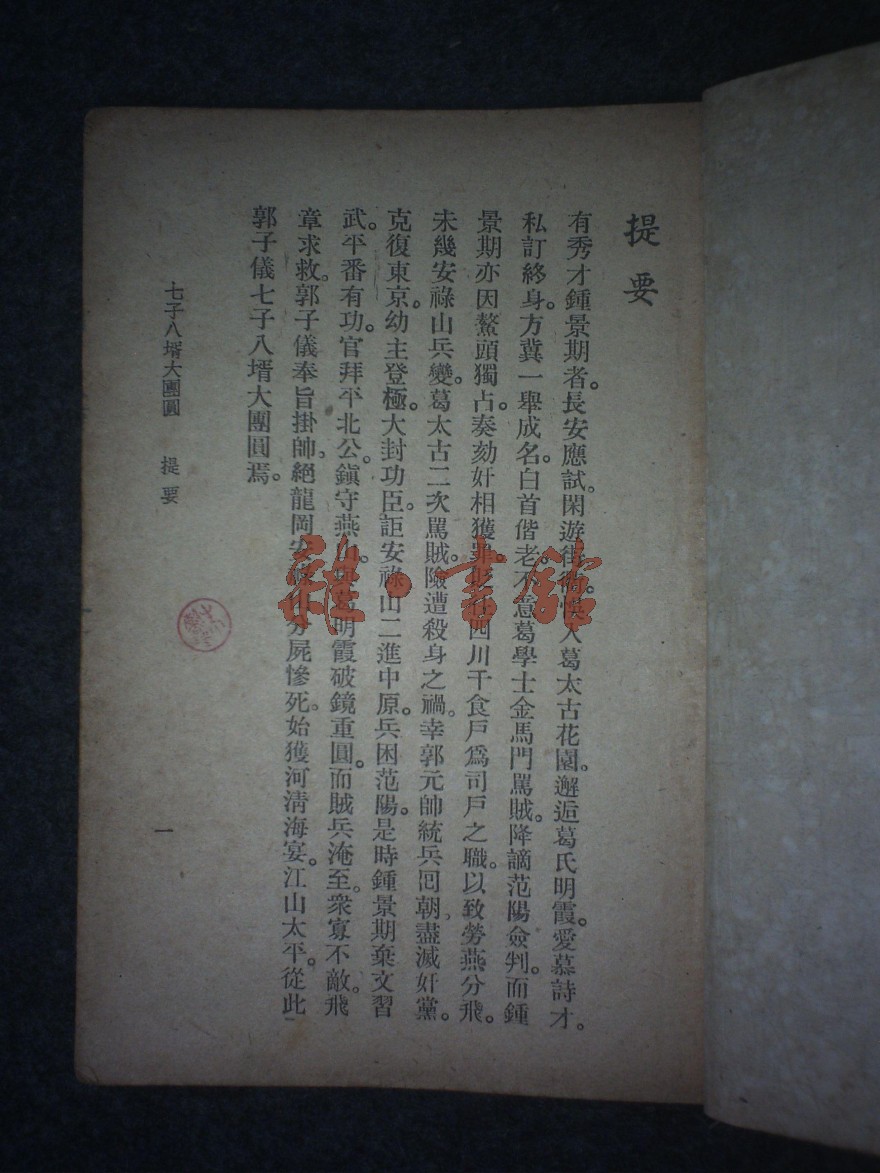 提要
有秀才鍾景期者。長安應試。閑遊街衢。悞入葛太古花園。邂逅葛氏明霞。愛慕詩才。
私訂終身。方冀一舉成名。白首偕老。不意葛學士金馬門罵賊。降謫范陽僉判。而鍾
景期亦因鰲頭獨占。奏劾奸相獲罪。貶 四川干食戶爲司戶之職。以致勞燕分飛。
未幾安祿山兵變。葛太古二次罵賊。險遭殺身之禍。幸郭元帥統兵囘朝。盡滅奸黨。
克復東京。幼主登極。大封功臣。詎安祿山二進中原。兵困范陽。是時鍾景期棄文習
武。平番有功。官拜平北公。鎭守燕山。與葛明霞破鏡重圓。而賊兵淹至。衆寡不敵。飛
章求救。郭子儀奉旨掛帥。絕龍岡安祿山分屍慘死。始獲河清海宴。江山太平。從此
郭子儀七子八壻大團圓焉。
七子八壻大團圓 提要
一
雜·書館